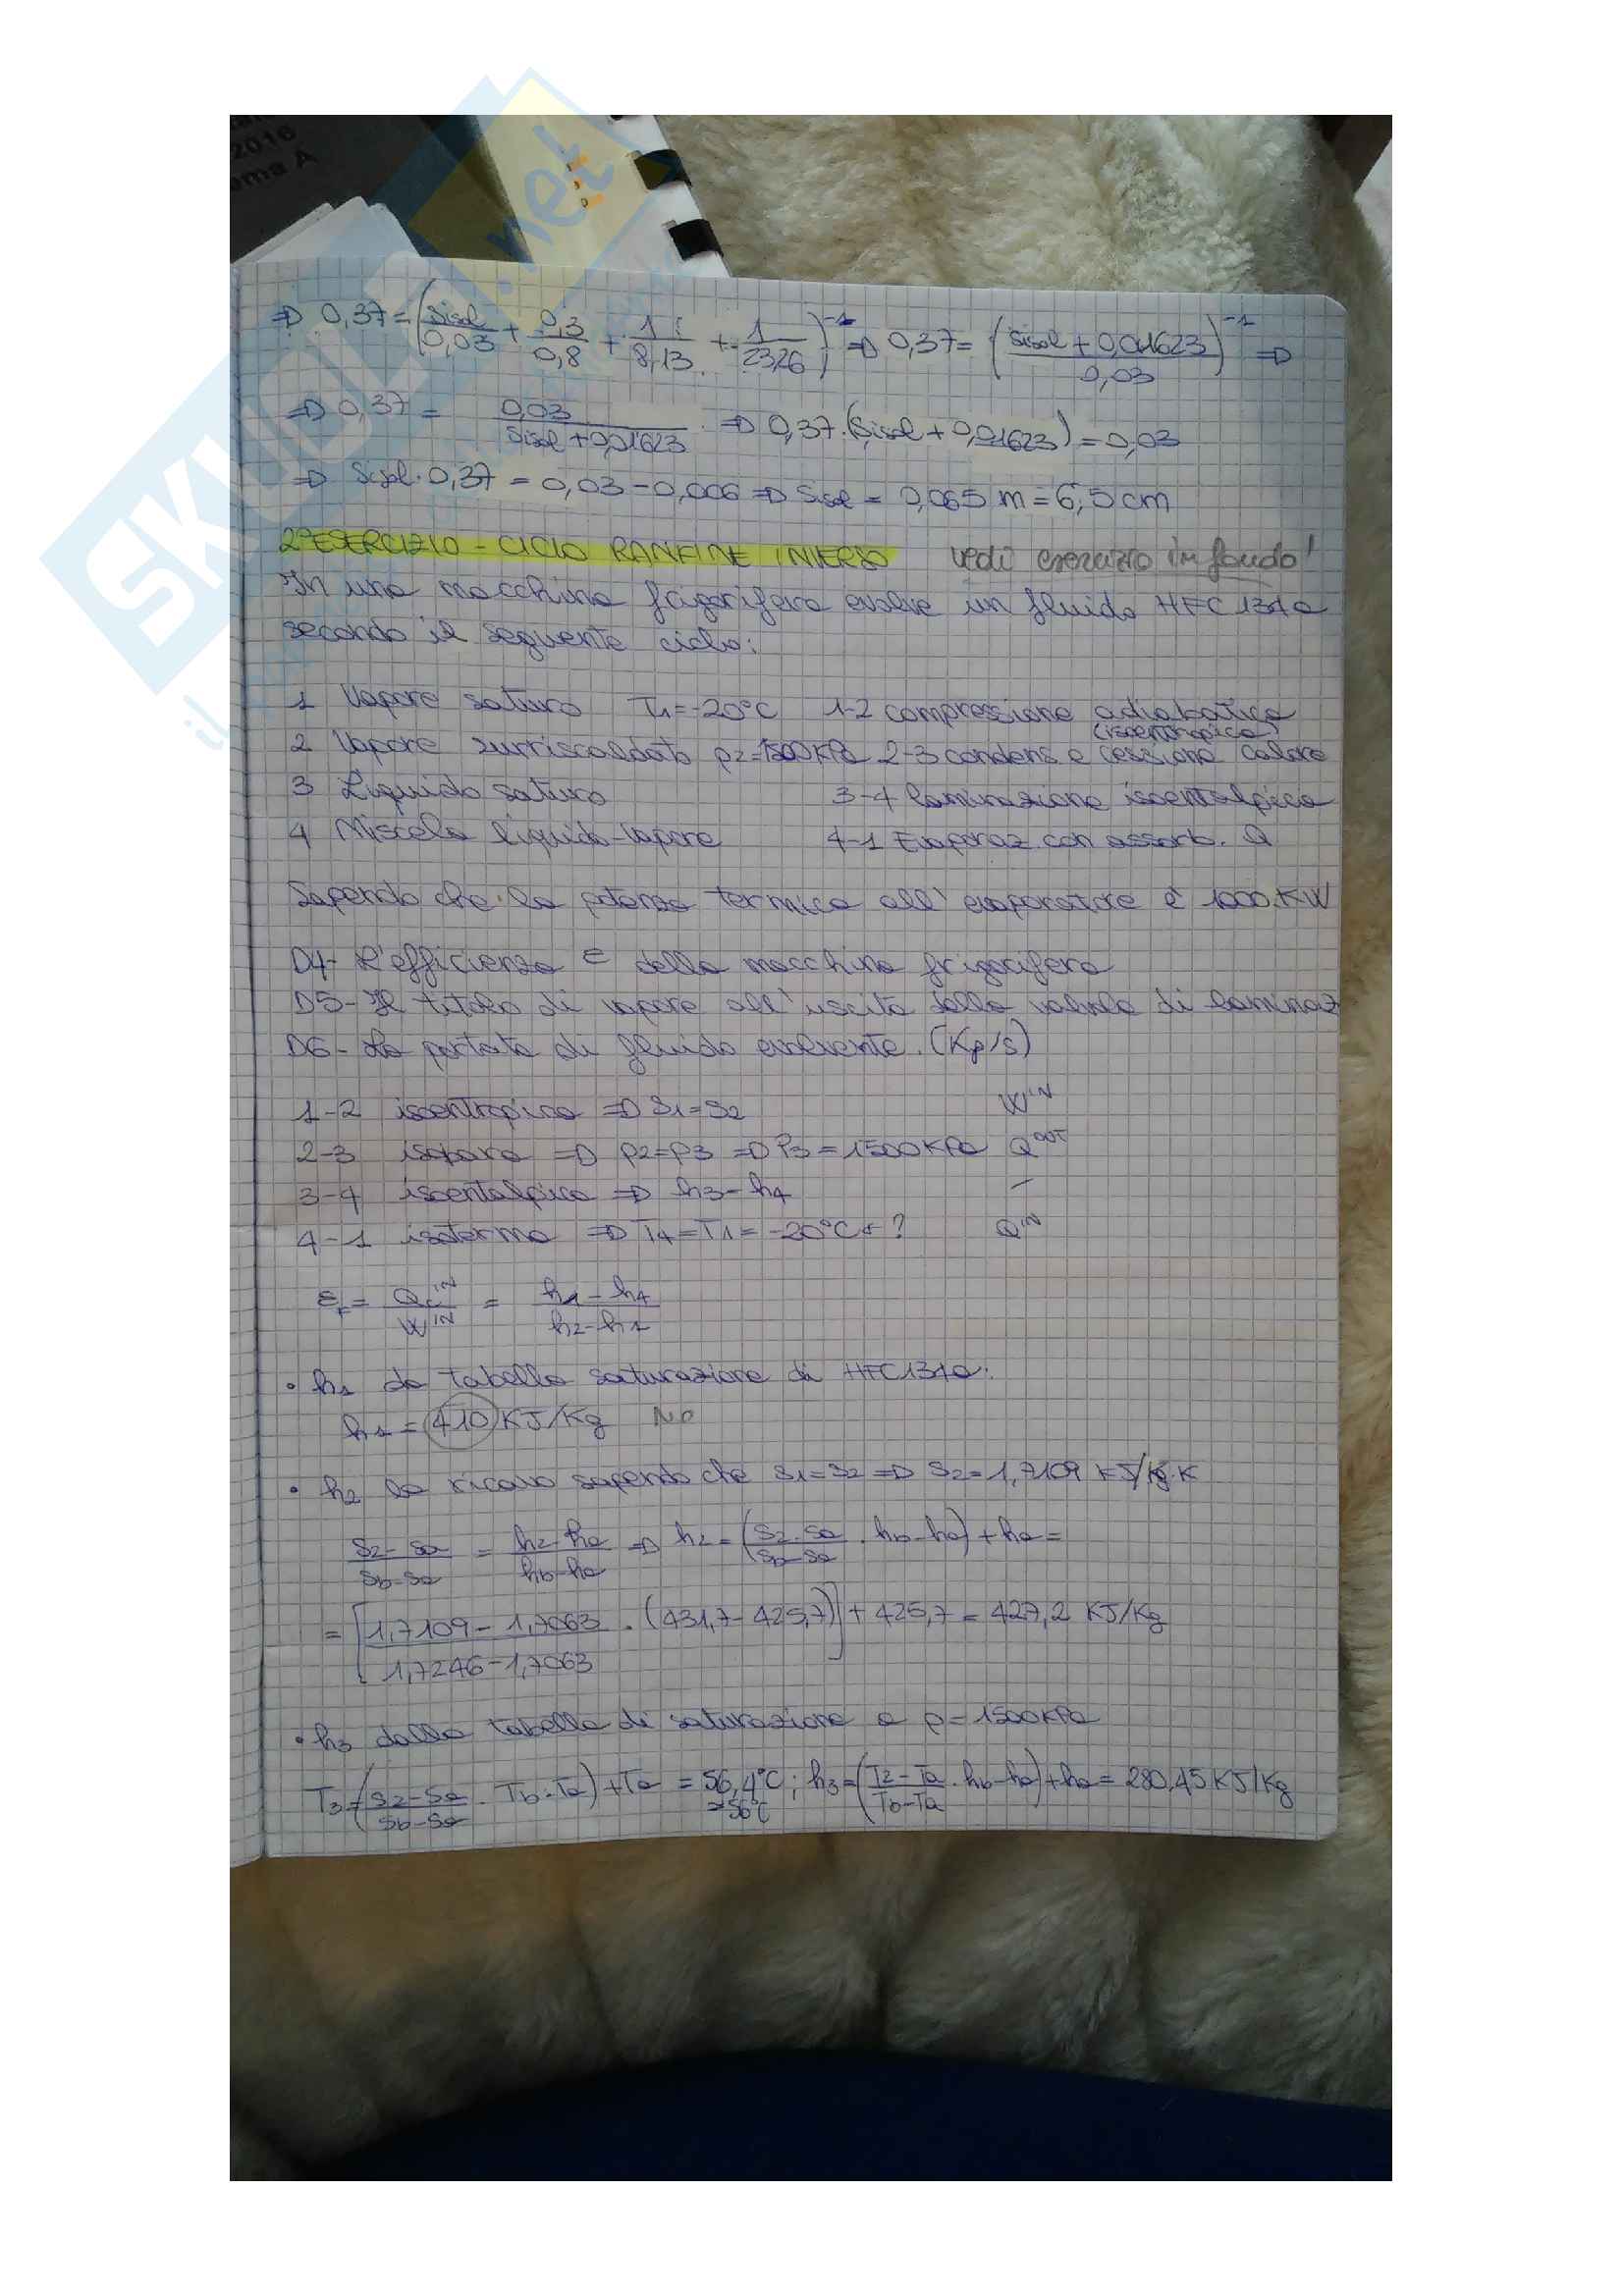 2016
oma A
SKUOLA.net
⇒ 0,37 = (Sisol/0,03 + 0,3/0,8 + 1/8,13 + 1/23,26)^-1 ⇒ 0,37 = ((Sisol + 0,01623)/0,03)^-1 ⇒
⇒ 0,37 = 0,03/(Sisol + 0,01623) ⇒ 0,37·(Sisol + 0,01623) = 0,03
⇒ Sisol·0,37 = 0,03 - 0,006 ⇒ Sisol = 0,065 m = 6,5 cm
2° ESERCIZIO - CICLO RANKINE INVERSO vedi esercizio in fondo!
In una macchina frigorifera evolve un fluido HFC134a
secondo il seguente ciclo:
1 Vapore saturo T1=-20°C 1-2 compressione adiabatica (isoentropica)
2 Vapore surriscaldato p2=1500KPa 2-3 condens e cessione calore
3 Liquido saturo 3-4 laminazione isoentalpica
4 Miscela liquido-vapore 4-1 Evaporaz. con assorb. Q
Sapendo che la potenza termica all'evaporatore è 1000 KW
D4- L'efficienza ε della macchina frigorifera
D5- Il titolo di vapore all'uscita della valvola di laminaz
D6- La portata di fluido evolvente. (Kg/s)
1-2 isoentropica ⇒ S1=S2 W^IN
2-3 isobara ⇒ p2=p3 ⇒ P3=1500KPa Q^OUT
3-4 isoentalpica ⇒ h3=h4 -
4-1 isoterma ⇒ T4=T1=-20°C ?
Q^IN
εf = Qc^IN/W^IN = (h1-h4)/(h2-h1)
• h1 da tabella saturazione di HFC134a:
h1 = 410 KJ/Kg No
• h2 lo ricavo sapendo che S1=S2 ⇒ S2=1,7109 KJ/Kg·K
(S2-Sa)/(Sb-Sa) = (h2-ha)/(hb-ha) ⇒ h2 = ((S2-Sa)/(Sb-Sa) · hb-ha) + ha =
= [(1,7109-1,7063)/(1,7246-1,7063) · (431,7-425,7)] + 425,7 = 427,2 KJ/Kg
• h3 dalla tabella di saturazione a p=1500KPa
T3 = ((S2-Sa)/(Sb-Sa) · Tb-Ta) + Ta = 56,4°C ; h3 = ((T2-Ta)/(Tb-Ta) · hb-ha) + ha = 280,45 KJ/Kg
≈56°C